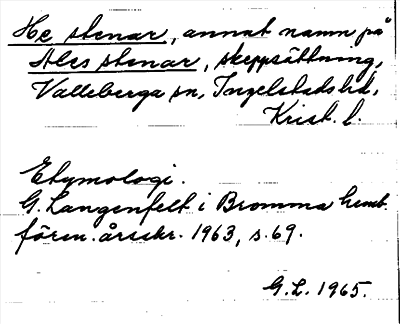 He stenar, annat namn på
Ales stenar, skeppsättning,
Valleberga sn, Ingelstads hd,
Krist. l.
Etymologi.
G. Langenfelt i Bromma hemb.
fören. årsskr. 1963, s. 69.
G.L. 1965.